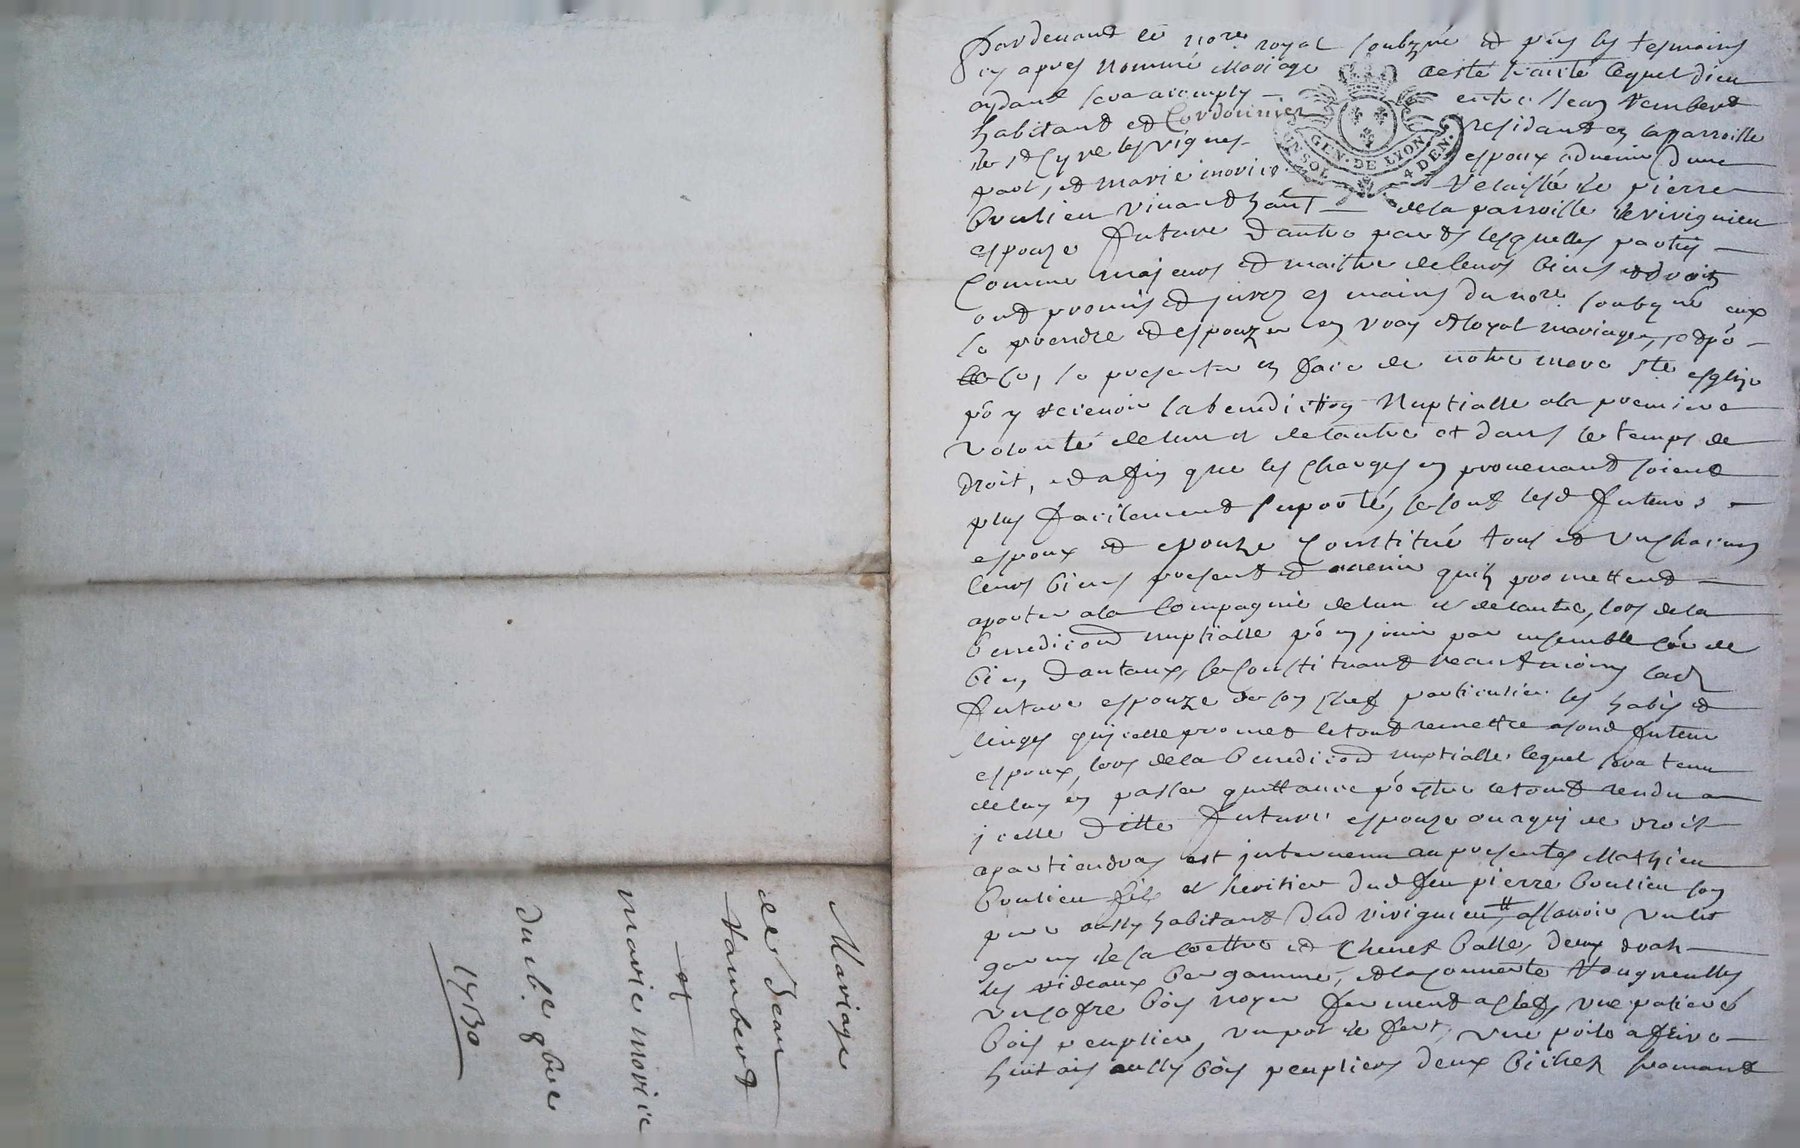 Pardevant le nore royal soubzné et pńs les tesmoins
cy apres nommé Mariage a esté traité lequel dieu
aydant sera acomply entre Jean Vambert
habitant et Cordonnier residant en la parroisse
de st Cyre les vignes espoux advenir d'une
part, et marie morice velaissée de pierre
Boulieu vivant hant de la parroisse de vivignieu
espouze future d'autre part lesquelles parties
Comme majeurs et maitre de leurs biens et droits
ont promis et jurez es mains du nore soubzné eux
se prendre et espouzer en vray et loyal mariage, et pō
ce, se presenter en face de notre mere ste esglize
pō y recievoir la benediction Nuptialle a la premiere
volonté de l'un et de l'autre et dans le temps de
droit, et affin que les charges en provenant soient
plus facilement suporté, se sont lesd futeurs
espoux et epouze constitué tous et un chacun
leurs biens present et avenir quils promettent
aporter a la Compagnie de l'un et de l'autre, lors de la
benediction nuptialle pō en jouir par ensemble
bien, d'antaux, se constituant neantmoins lad
future espouze de son chef particulier les habis et
linges qu'icelle promet le tout remettre a sond futeur
espoux, lors de la benediction nuptialle lequel sera tenu
de luy en passer quittance pō estre le tout rendu a
icelle ditte future espouze ou a qui de droit
apartiendra, est intervenu au presentes Mathieu
Boulieu fils et heritier dud feu pierre Boulieu son
pere aussy habitant dud vivignieu, assavoir un lit
garny de sa coettre et Chevet balle, deux draps
les rideaux bergamme, et la couverte
un cofre bois noyer fermant a clef, une
bois peuplier, un pot de fert, une poile a frire
huit ais aussy bois peupliers deux bichet fromant
GEN. DE LYON
UN SOL 4 DEN.
Mariage
de Jean
Vambert
et
marie morice
du 16e 9bre
1730